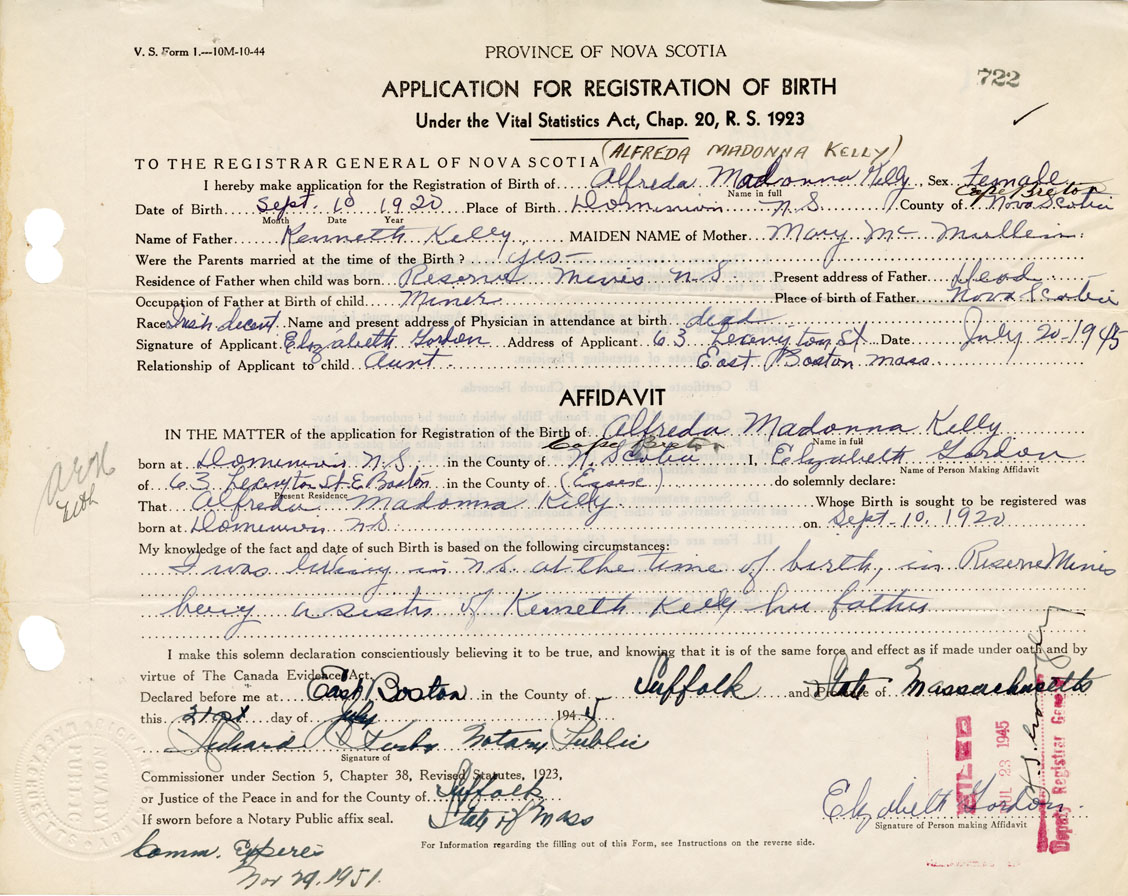 V. S. Form 1.—10M-10-44
PROVINCE OF NOVA SCOTIA
722
APPLICATION FOR REGISTRATION OF BIRTH
Under the Vital Statistics Act, Chap. 20, R. S. 1923
(ALFREDA MADONNA KELLY)
TO THE REGISTRAR GENERAL OF NOVA SCOTIA
I hereby make application for the Registration of Birth of Alfreda Madonna Kelly, Sex Female
Name in full
Cape Breton
Date of Birth Sept. 10 1920 Place of Birth Dominion N.S. County of Nova Scotia
Month Date Year
Name of Father Kenneth Kelly MAIDEN NAME of Mother Mary Mc Mullein.
Were the Parents married at time of the Birth? yes—
Residence of Father when child was born Reserve Mines N.S. Present address of Father Dead
Occupation of Father at Birth of child Miner Place of birth of Father Nova Scotia
Race Irish decent Name and present address of Physician in attendance at birth dead
Signature of Applicant Elizabeth Gordon Address of Applicant 63 Lexington St Date July 20-1945
Relationship of Applicant to child Aunt East Boston Mass.
AFFIDAVIT
IN THE MATTER of the application for Registration of the Birth of Alfreda Madonna Kelly
Name in full
Cape Breton
born at Dominion N.S. in the County of N. Scotia I, Elizabeth Gordon
Name of Person Making Affidavit
of 63 Lexington St E Boston in the County of (Essex) do solemnly declare:
Present Residence
That Alfreda Madonna Kelly Whose Birth is sought to be registered was
born at Dominion N.S. on Sept. 10, 1920
My knowledge of the fact and date of such Birth is based on the following circumstances:
I was living in N.S. at the time of birth, in Reserve Mines
being a sister of Kenneth Kelly her father
I make this solemn declaration conscientiously believing it to be true, and knowing that it is of the same force and effect as if made under oath and by
virtue of The Canada Evidence Act.
Declared before me at East Boston in the County of Suffolk and State of Massachusetts
this 21st day of July 1945
Richard Kirby Notary Public
Signature of
Commissioner under Section 5, Chapter 38, Revised Statutes, 1923,
or Justice of the Peace in and for the County of Suffolk
If sworn before a Notary Public affix seal. State of Mass
Elizabeth Gordon
Signature of Person making Affidavit
For Information regarding the filling out of this Form, see Instructions on the reverse side.
Comm. Experes
Nov 29, 1951.
FILED
JUL 23 1945
Deputy Registrar General